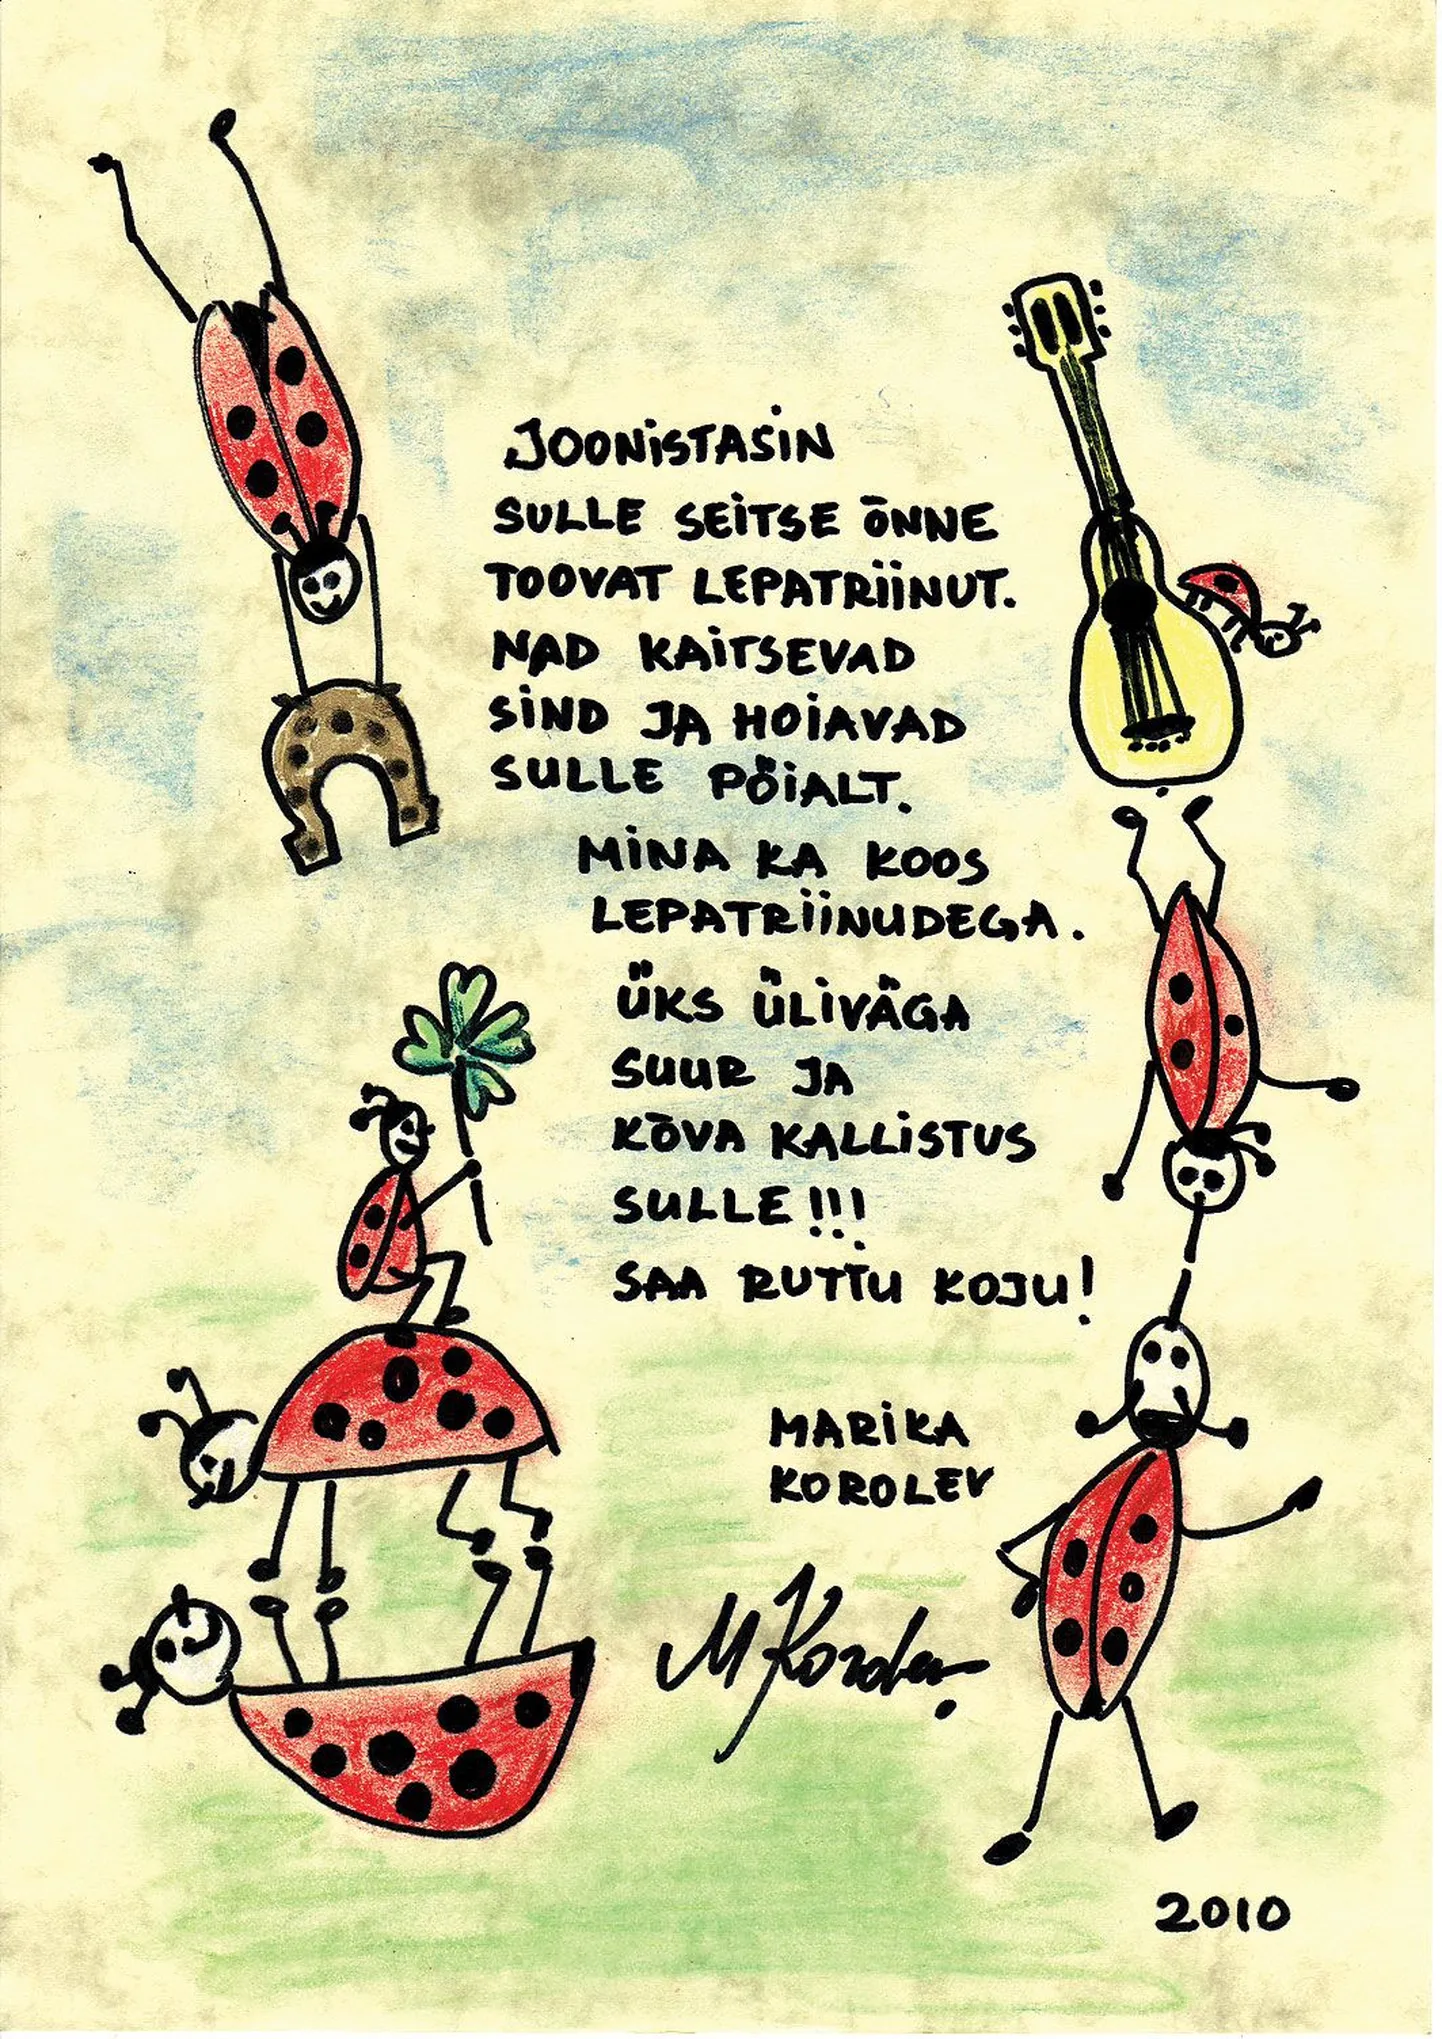 JOONISTASIN
SULLE SEITSE ÕNNE
TOOVAT LEPATRIINUT.
NAD KAITSEVAD
SIND JA HOIAVAD
SULLE PÖIALT.
MINA KA KOOS
LEPATRIINUDEGA.
ÜKS ÜLIVÄGA
SUUR JA
KÕVA KALLISTUS
SULLE!!!
SAA RUTTU KOJU!
MARIKA
KOROLEV
MKorolev
2010